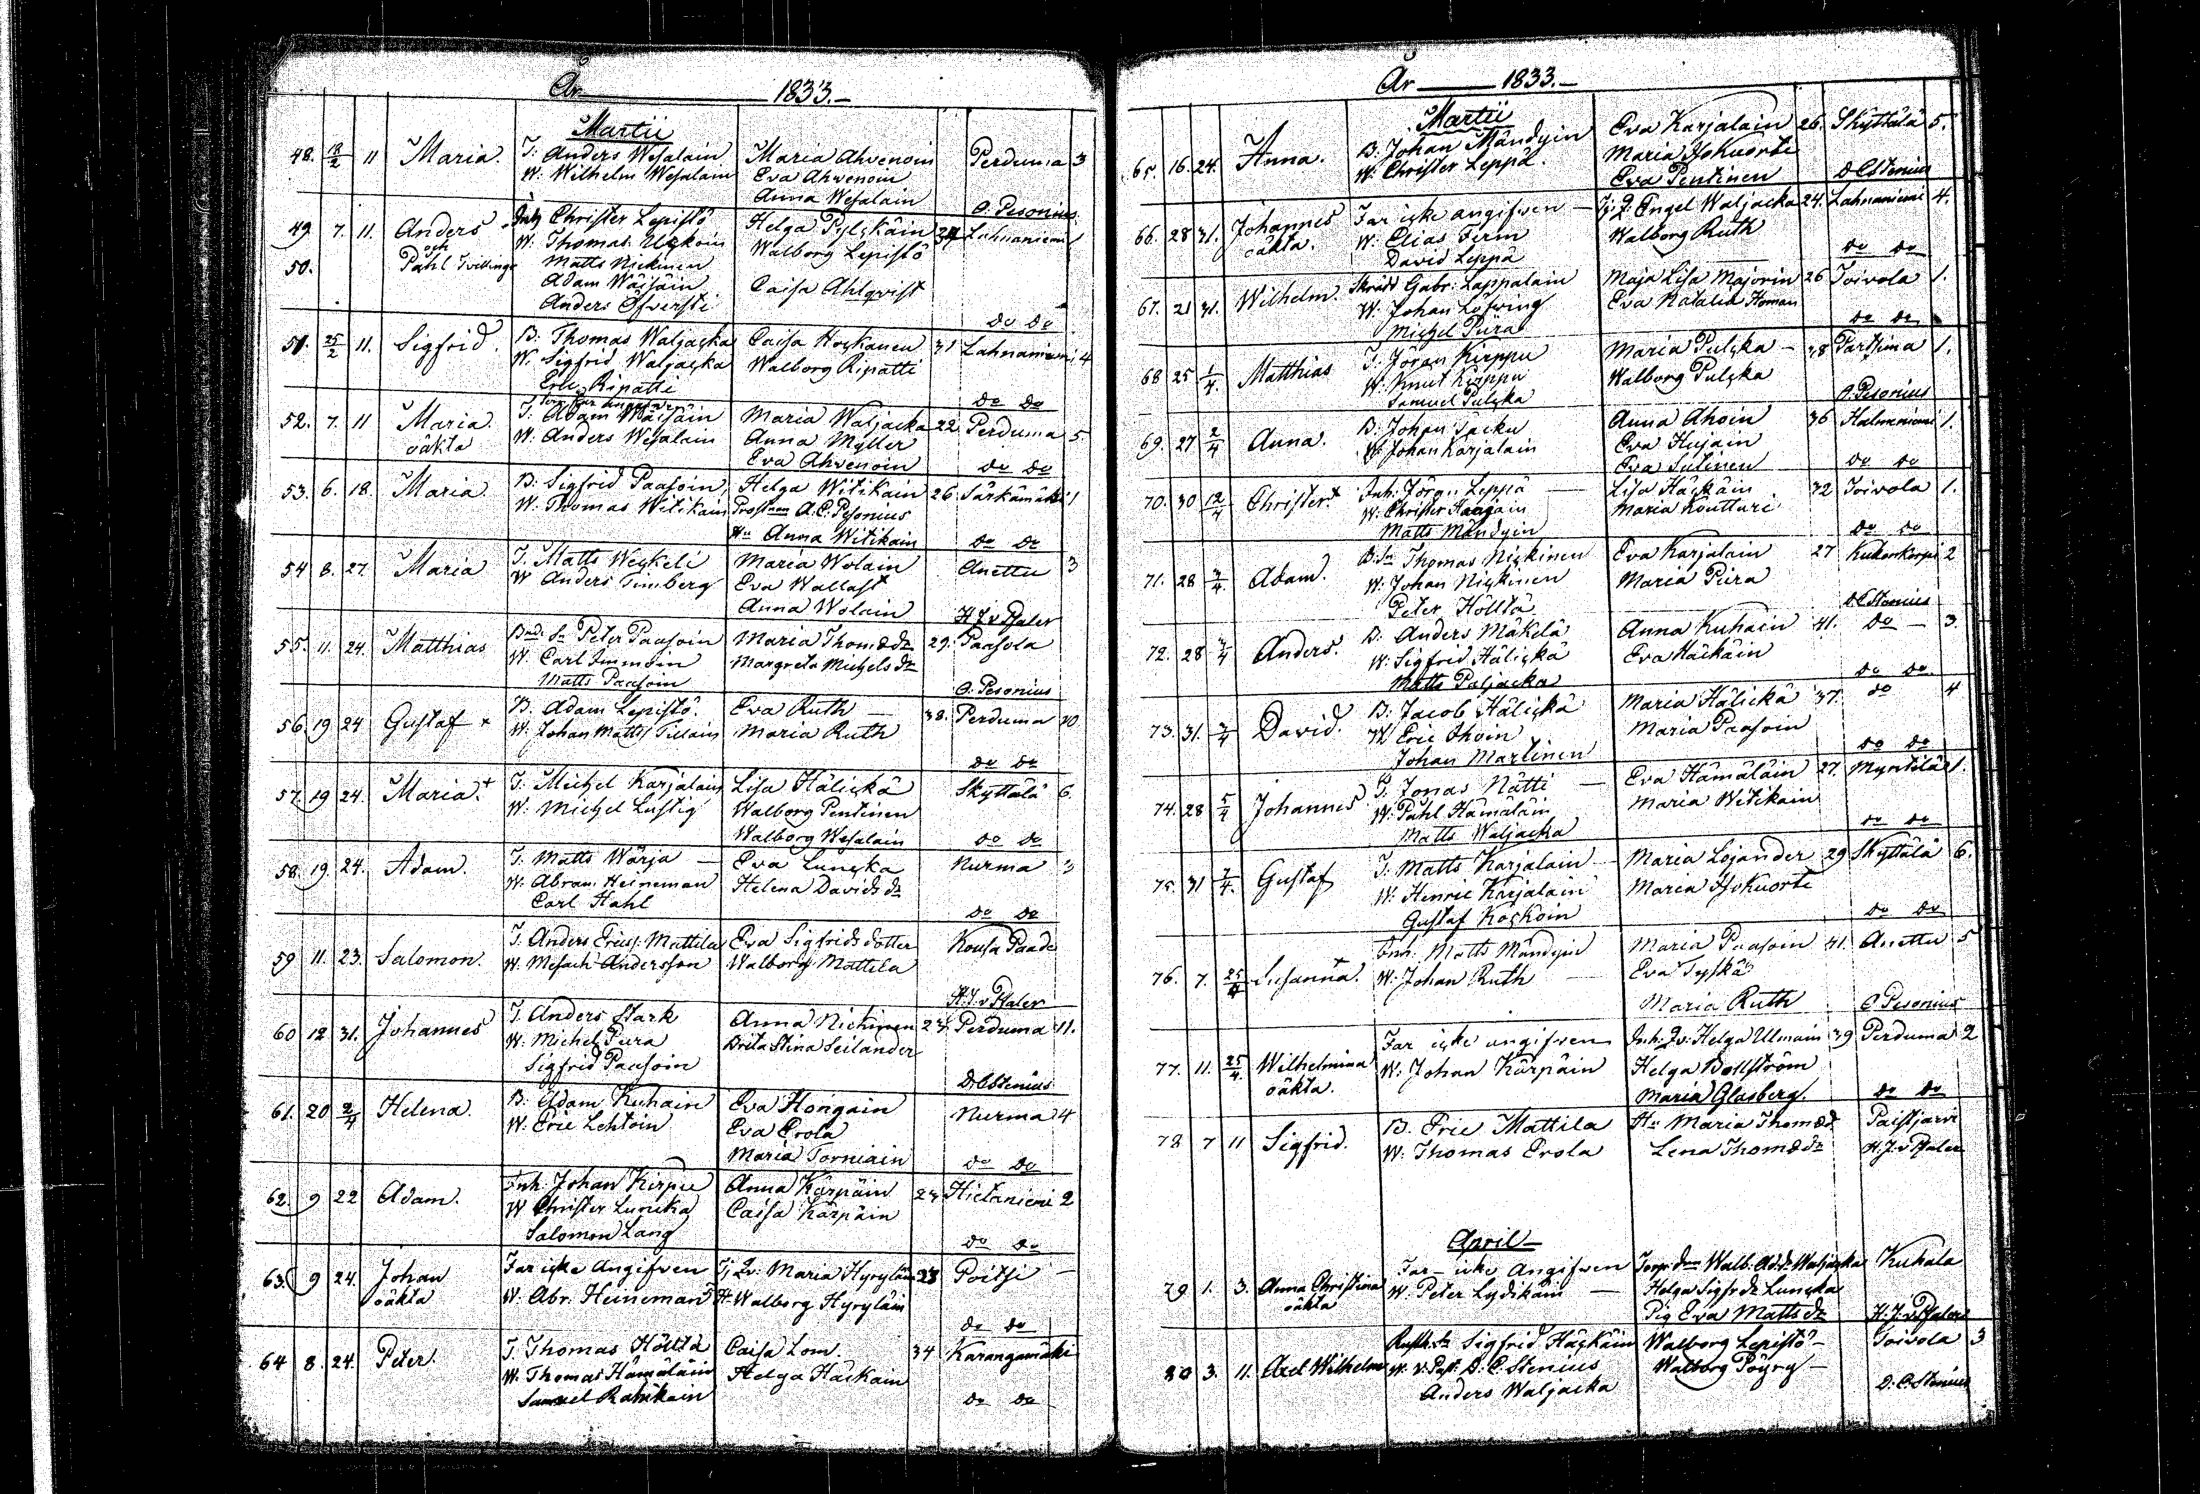 År 1833.
Martii
48. 18/2 11 Maria. T: Anders Wesalain Maria Ahvenoin Perduma 3
W. Wilhelm Wesalain Eva Ahvenoin
Anna Wesalain O. Pesonius
49. 7. 11. Anders Inh Christer Lepistö Helga Pylckäin Lahnaniemi
och W. Thomas Walborg Lepistö
50. Påhl Tvillingr Matts Nickinen
Adam Wäisäin Caisa Ahlqvist
Anders Öfversti
do do
51. 25/2 11. Sigfrid. B. Thomas Waljacka Caisa Hockanen 31 Lahnaniemi 4
W. Sigfrid Waljacka Walborg Ripatti
Eric Ripatti do do
52. 7. 11 Maria T: Adam Wäisäin Maria Waljacka 22. Perduma 5.
oäkta W. Anders Wesalain Anna Myller
Eva Ahvenoin do do
53. 6. 18. Maria B. Sigfrid Paasoin Helga Witikain 26. Särkämäki 1
W. Thomas Witikain A. C. Pesonius
Anna Witikain do do
54 8. 27. Maria T. Matts Weckeli Maria Wolain Anettu 3
W Anders Timberg Eva Wallast
Anna Wolain H J v Pfaler
55. 11. 24. Matthias Peter Paasoin Maria Thomæ dr 29. Paasola
W Carl Immoin Margreta Michels dr
Matts Paasoin O. Pesonius
56. 19 24 Gustaf + B. Adam Lepistö. Eva Ruth 38. Perduma 10
W. Johan Matts Pillain Maria Ruth
do do
57. 19 24. Maria + T. Michel Karjalain Lisa Hälickä Skyttälä 6
W. Michel Lustig Walborg Pentinen
Walborg Wesalain do do
58. 19. 24. Adam. T. Matts Wärja Eva Luncka Nurma 3
W. Abram Heineman Helena Davids dr
Carl Hahl do do
59 11. 23. Salomon. T. Anders Ericss. Mattila Eva Sigfrids dotter Kousa Paade
W. Mesach Andersson Walborg Mattila
H. J. v Pfaler
60 12 31. Johannes T. Anders Stark Anna Nickinen 24. Perduma 11.
W. Michel Pura Brita Stina Seilander
Sigfrid Paasoin D. C. Stenius
61. 20 2/4 Helena. B: Adam Kuhain Eva Hongain Nurma 4
W. Eric Lehtoin Eva Erola
Maria Torniain do do
62. 9 22 Adam. Inh. Johan Kirpu Anna Kärpäin Hietaniemi 2
W Christer Luncka Caisa Kärpäin
Salomon Lang do do
63. 9 24. Johan Far icke angifven Tj. Qv: Maria Hyryläin 23 Poitsi
oäkta W. Abr. Heineman H. Walborg Hyryläin
do do
64 8. 24. Peter. T. Thomas Hölttä Caisa Lom. 34 Karangamäki
W. Thomas Hämäläin Helga Häckäin
Samuel Rahikain do do
År 1833.
Martii
65. 16. 24. Anna. B: Johan Mändyin Eva Karjalain 26. Skyttälä 5.
W. Christer Leppä. Maria Jokuorti
Eva Pentinen D C Stenius
66. 28 31. Johannes Far icke angifven Tj. Q. Engel Waljacka 24. Lahnaniemi 4.
oäkta. W: Elias Ferm Walborg Ruth
David Leppä do do
67. 21 31. Wilhelm. Skrädd Gabr. Lappalain Maja Lisa Majorin 26 Toivola 1.
W. Johan Löfving Eva Natalia Homan
Michel Pura do do
68 25 1/4. Matthias T. Jöran Kirppu Maria Pulcka 38 Partsima 1.
W. Knut Kirppu Walborg Pulcka
Samuel Pulcka O. Pesonius
69. 27 2/4 Anna. B. Johan Jacku Anna Ahoin 36 Halmeniemi 1.
W. Johan Karjalain Eva Hujain
Eva Sutinen do do
70. 30 12/4 Christer. + Inh. Jöran Leppä Lisa Häckäin 32 Toivola 1.
W. Christer Maria Koutturi
Matts Mändyin do do
71. 28 3/4. Adam. B. Sn Thomas Nickinen Eva Karjalain 27 2
W. Johan Nickinen Maria Pura
Peter Hölttä D. C Stenius
72. 28 3/4 Anders. B. Anders Mäkelä Anna Kuhain 41. do 3.
W: Sigfrid Hälickä Eva Häckäin
Matts Paljacka do do
73. 31. 3/4 David. B: Jacob Hälickä Maria Hälickä 37. do 4
W Eric Ihoin Maria Paasoin
Johan Martinen do do
74. 28 5/4 Johannes T. Jonas Nätti Eva Hämäläin 27. Myntilä 1.
W. Påhl Hämäläin Maria Witikain
Matts Waljacka do do
75. 31 7/4. Gustaf T. Matts Karjalain Maria Lojander 29 Skyttälä 6.
W. Henric Karjalain Maria Jokuorti
Gustaf Kockoin do do
76. 7. 25/4 Susanna. + Inh. Matts Mändyin Maria Paasoin 41. Anettu 5
W. Johan Ruth Eva Tyskä
Maria Ruth O. Pesonius
77. 11. 25/4. Wilhelmina Far icke angifven Inh. Qv: Helga Ulmain 39 Perduma 2
oäkta. W. Johan Kärpäin Helga Bollström
Maria Glasberg. do do
78 7 11 Sigfrid. B. Eric Mattila Hu Maria Thomæ dr Paistjärvi
W. Thomas Erola Lena Thomæ dr H. J. v Pfaler
April
79 1. 3. Anna Christina Far icke angifven Walb. Ad. dr Waljacka Kukala
oäkta W. Peter Lydikäin Helga Sigfrds Luncka
Pig Eva Matts dr H. J. v Pfaler
80 3. 11. Axel Wilhelm Sigfrid Häckäin Walborg Lepistö Toivola 3
W. v. Past. D. C. Stenius Walborg Pöyry
Anders Waljacka D. C. Stenius